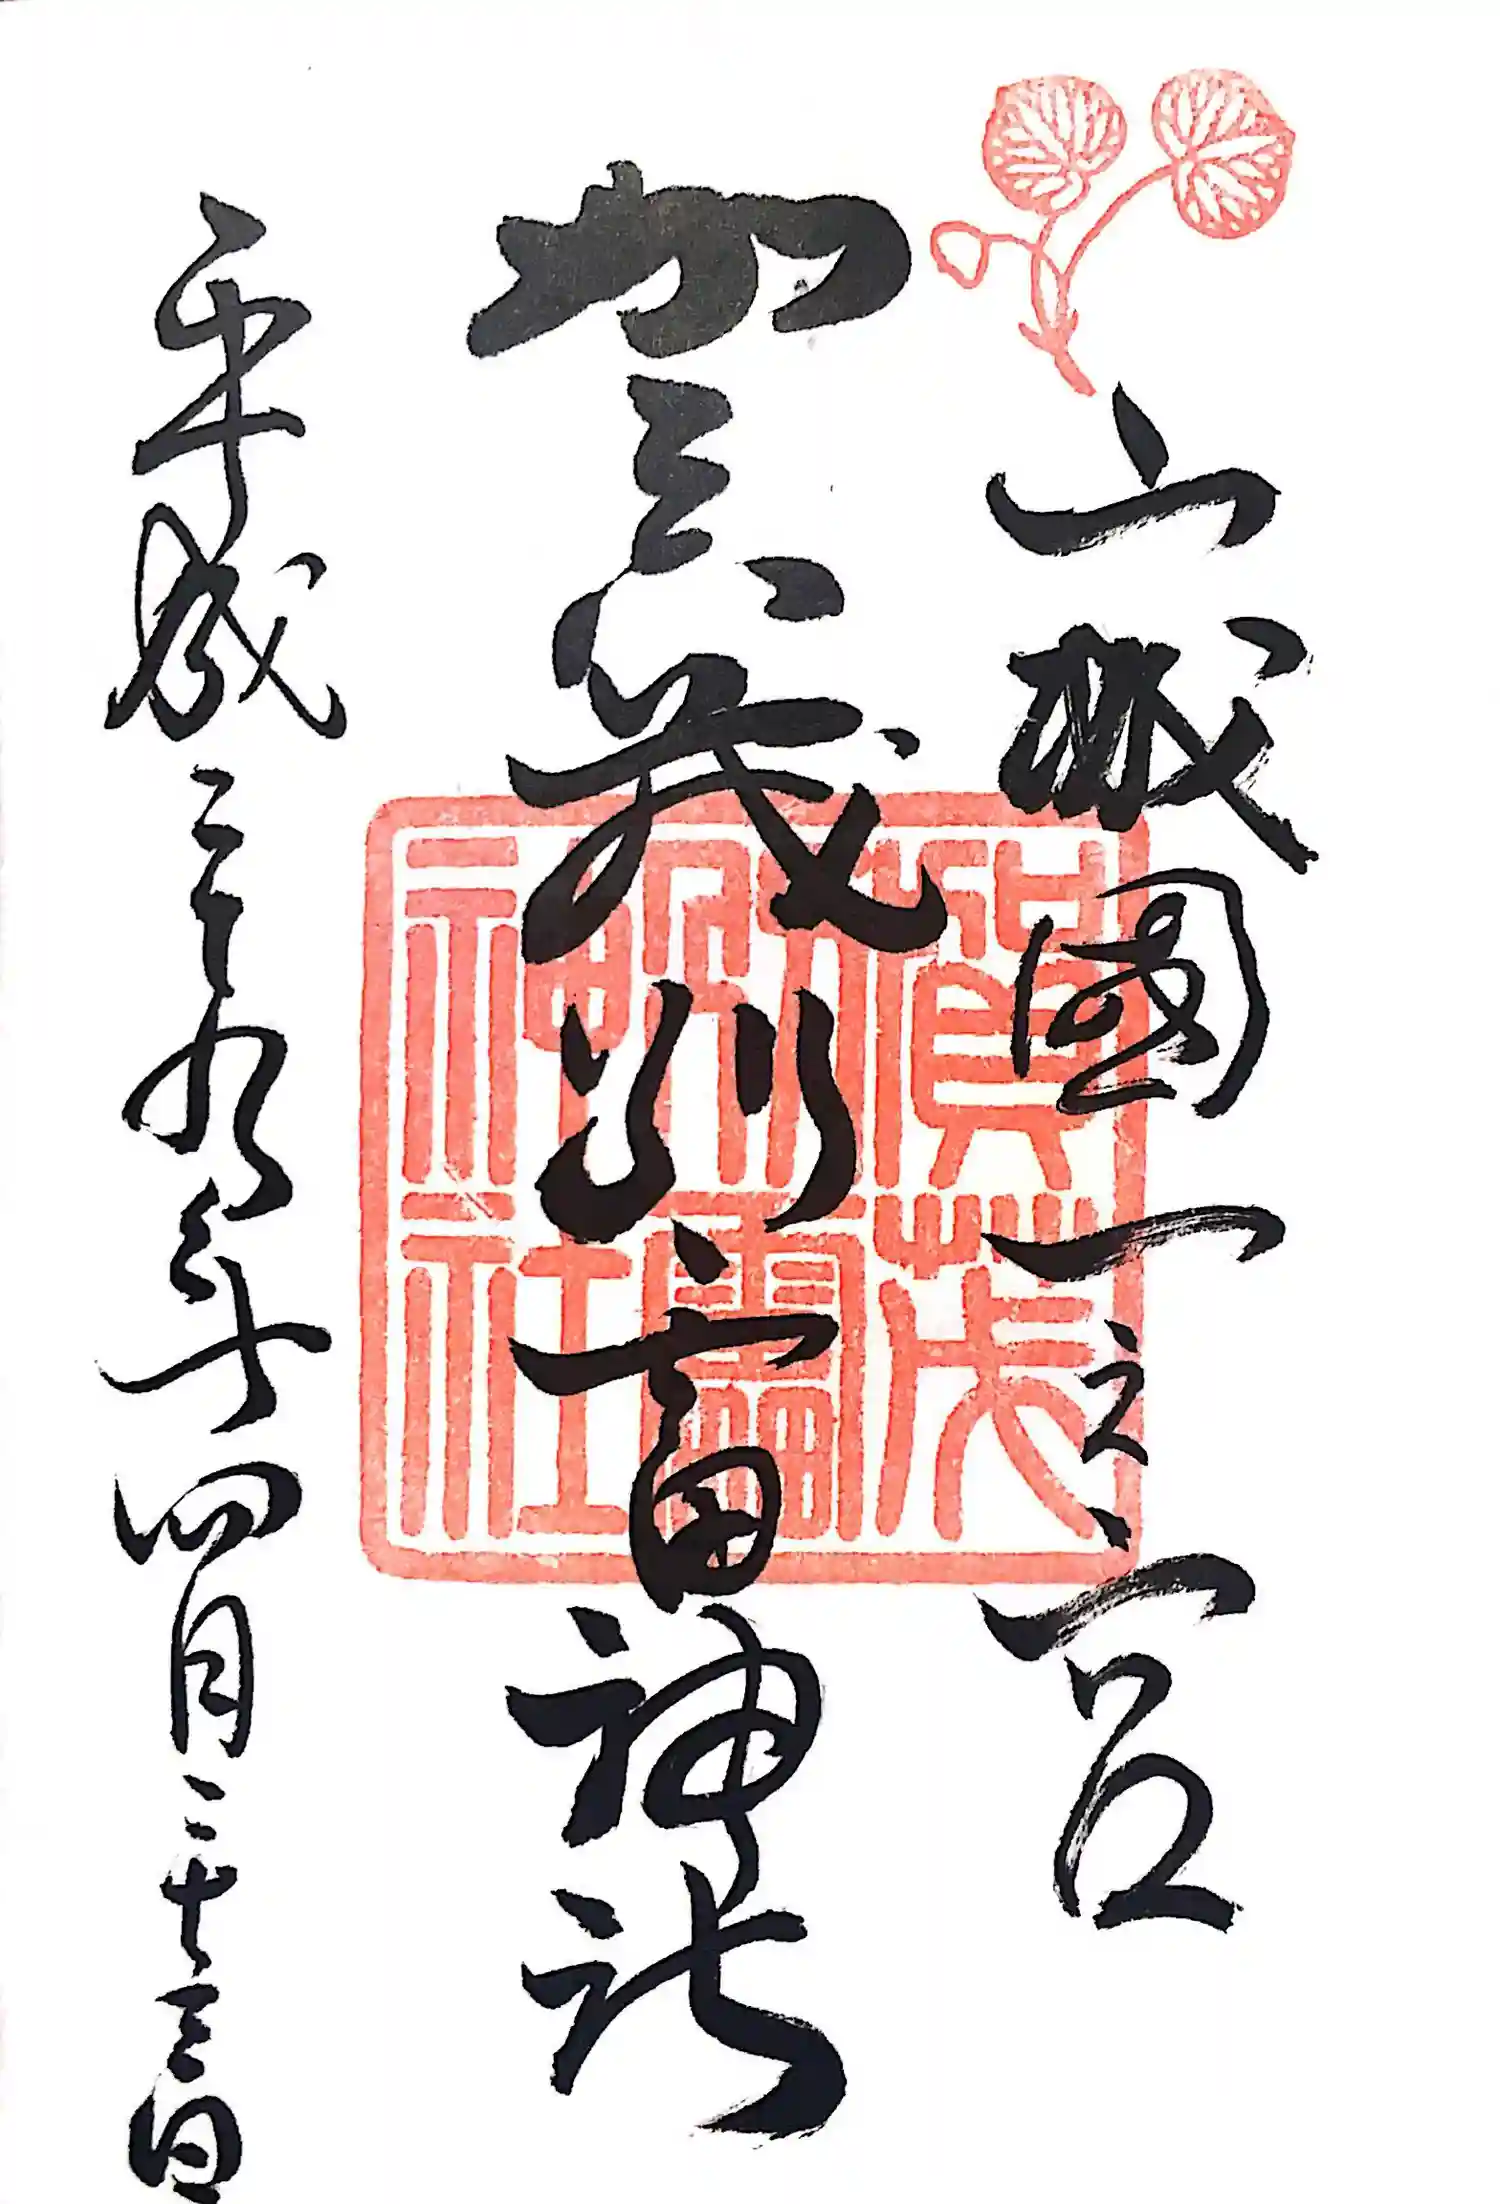 山城國一之宮
賀茂別雷神社
平成二十九年四月二十三日
賀茂
別雷
神社